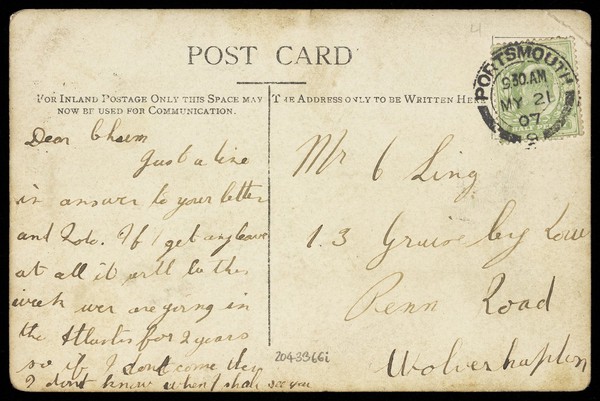 POST CARD
FOR INLAND POSTAGE ONLY THIS SPACE MAY
NOW BE USED FOR COMMUNICATION.
THE ADDRESS ONLY TO BE WRITTEN HERE
PORTSMOUTH
9.30.AM
MY 21
07
Dear Chum
Just a line
in answer to your letter
and Foto. If I get any leave
at all it will be this
week wer are going in
the Atlantis for 2 years
so if I dont come they
I dont know when I shall see you
Mr C Ling
13 Law
Penn Road
Wolverhapton
2043966i